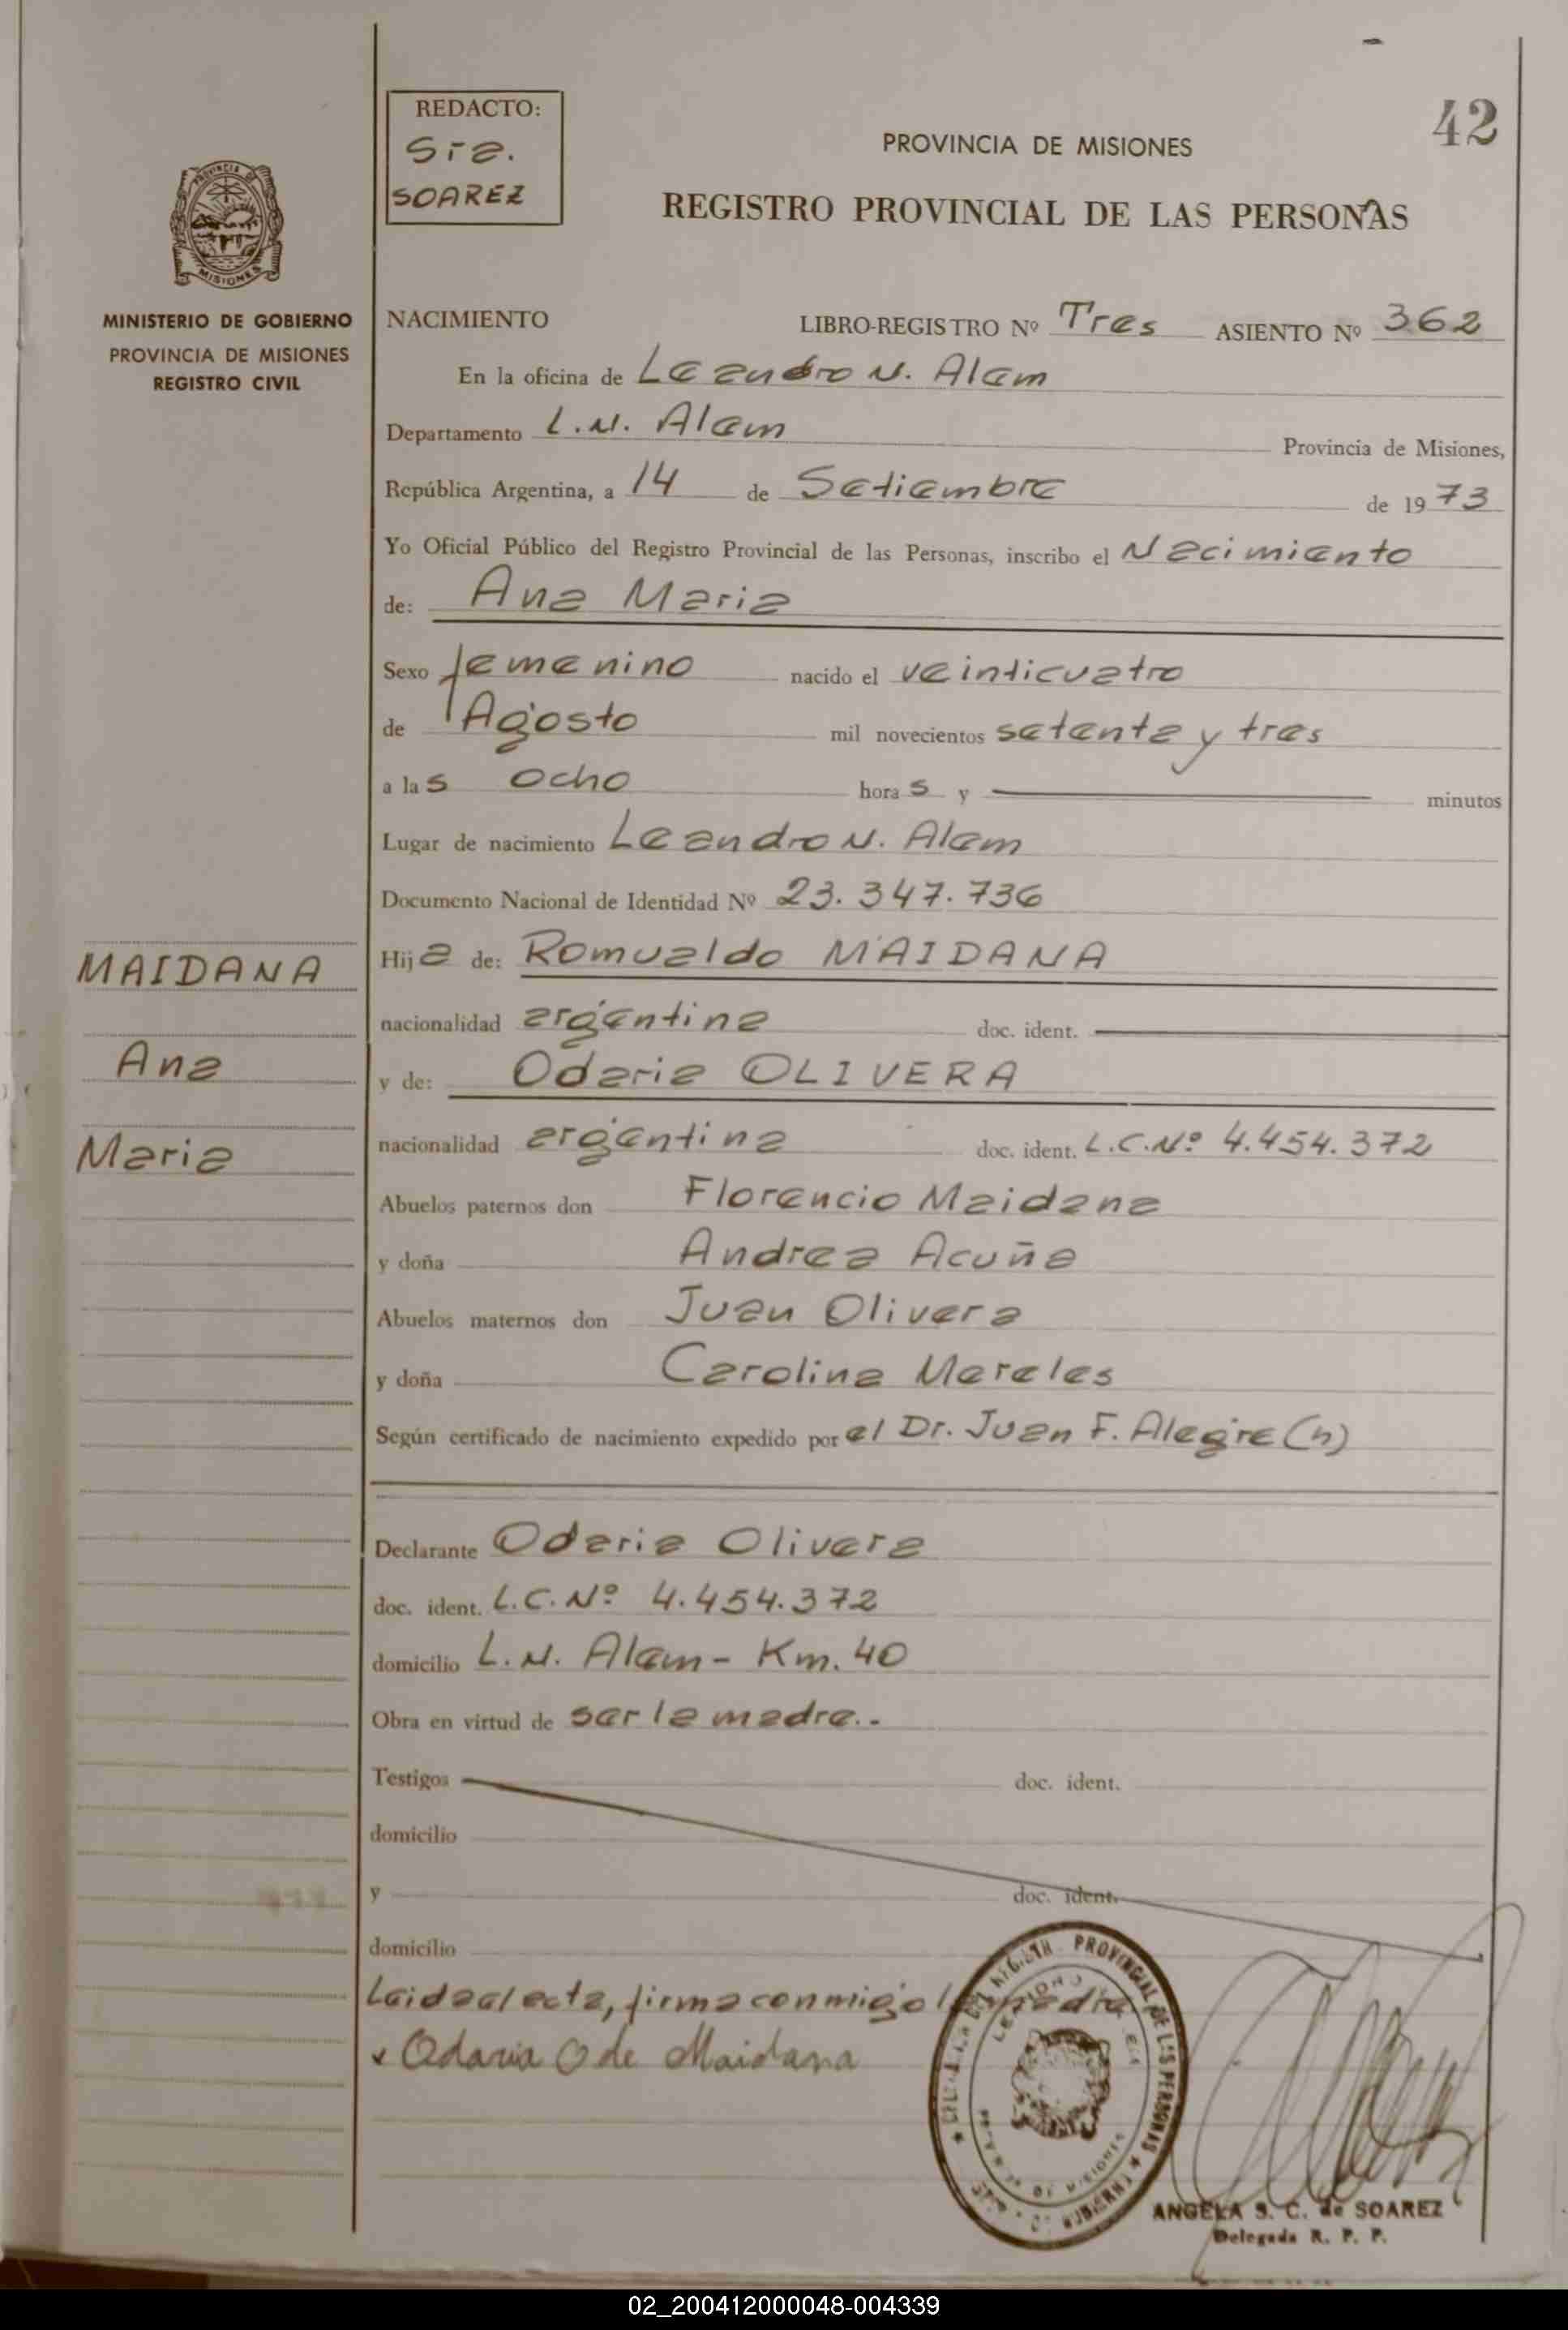 42
REDACTO:
Sra.
SOAREZ
PROVINCIA DE MISIONES
REGISTRO PROVINCIAL DE LAS PERSONAS
MINISTERIO DE GOBIERNO
PROVINCIA DE MISIONES
REGISTRO CIVIL
NACIMIENTO LIBRO-REGISTRO Nº Tres ASIENTO Nº 362
En la oficina de Leandro N. Alem
Departamento L.N. Alem Provincia de Misiones,
República Argentina, a 14 de Setiembre de 1973
Yo Oficial Público del Registro Provincial de las Personas, inscribo el Nacimiento
de: Ana Maria
Sexo femenino nacido el veinticuatro
de Agosto mil novecientos setenta y tres
a las ocho horas y minutos
Lugar de nacimiento Leandro N. Alem
Documento Nacional de Identidad Nº 23.347.736
MAIDANA
Ana
Maria
Hija de: Romualdo MAIDANA
nacionalidad argentina doc. ident.
y de: Odaria OLIVERA
nacionalidad argentina doc. ident. L.C.Nº 4.454.372
Abuelos paternos don Florencio Maidana
y doña Andrea Acuña
Abuelos maternos don Juan Olivera
y doña Carolina Mereles
Según certificado de nacimiento expedido por el Dr. Juan F. Alegre (h)
Declarante Odaria Olivera
doc. ident. L.C.Nº 4.454.372
domicilio L.N. Alem - Km. 40
Obra en virtud de ser la madre.-
Testigos doc. ident.
domicilio
y doc. ident.
domicilio
Leida el acta, firma conmigo la madre
Odaria O de Maidana
ANGELA S. C. de SOAREZ
Delegada R. P. P.
02_200412000048-004339